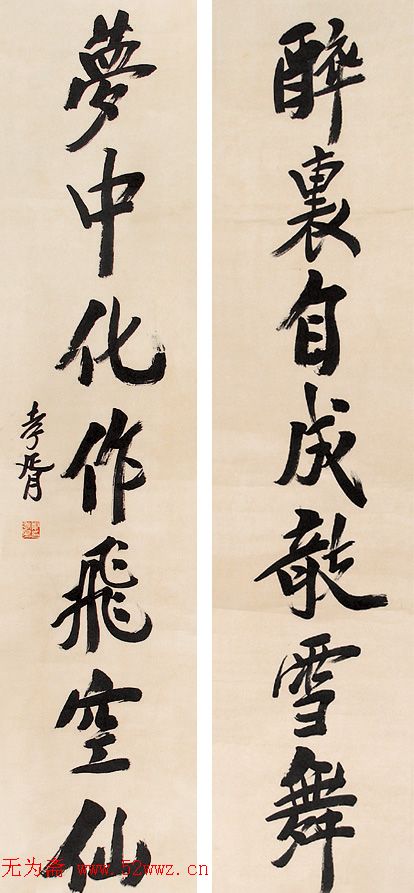 醉裏自成龍雪舞
夢中化作飛空仙
孝胥
无为斋 www.52wwz.cn